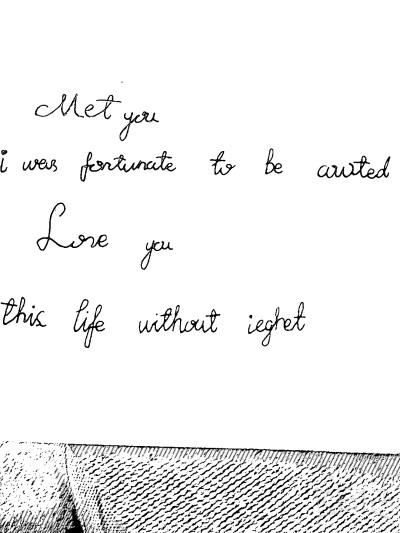 Met you
i was fortunate to be
Love you
this life without ieghet